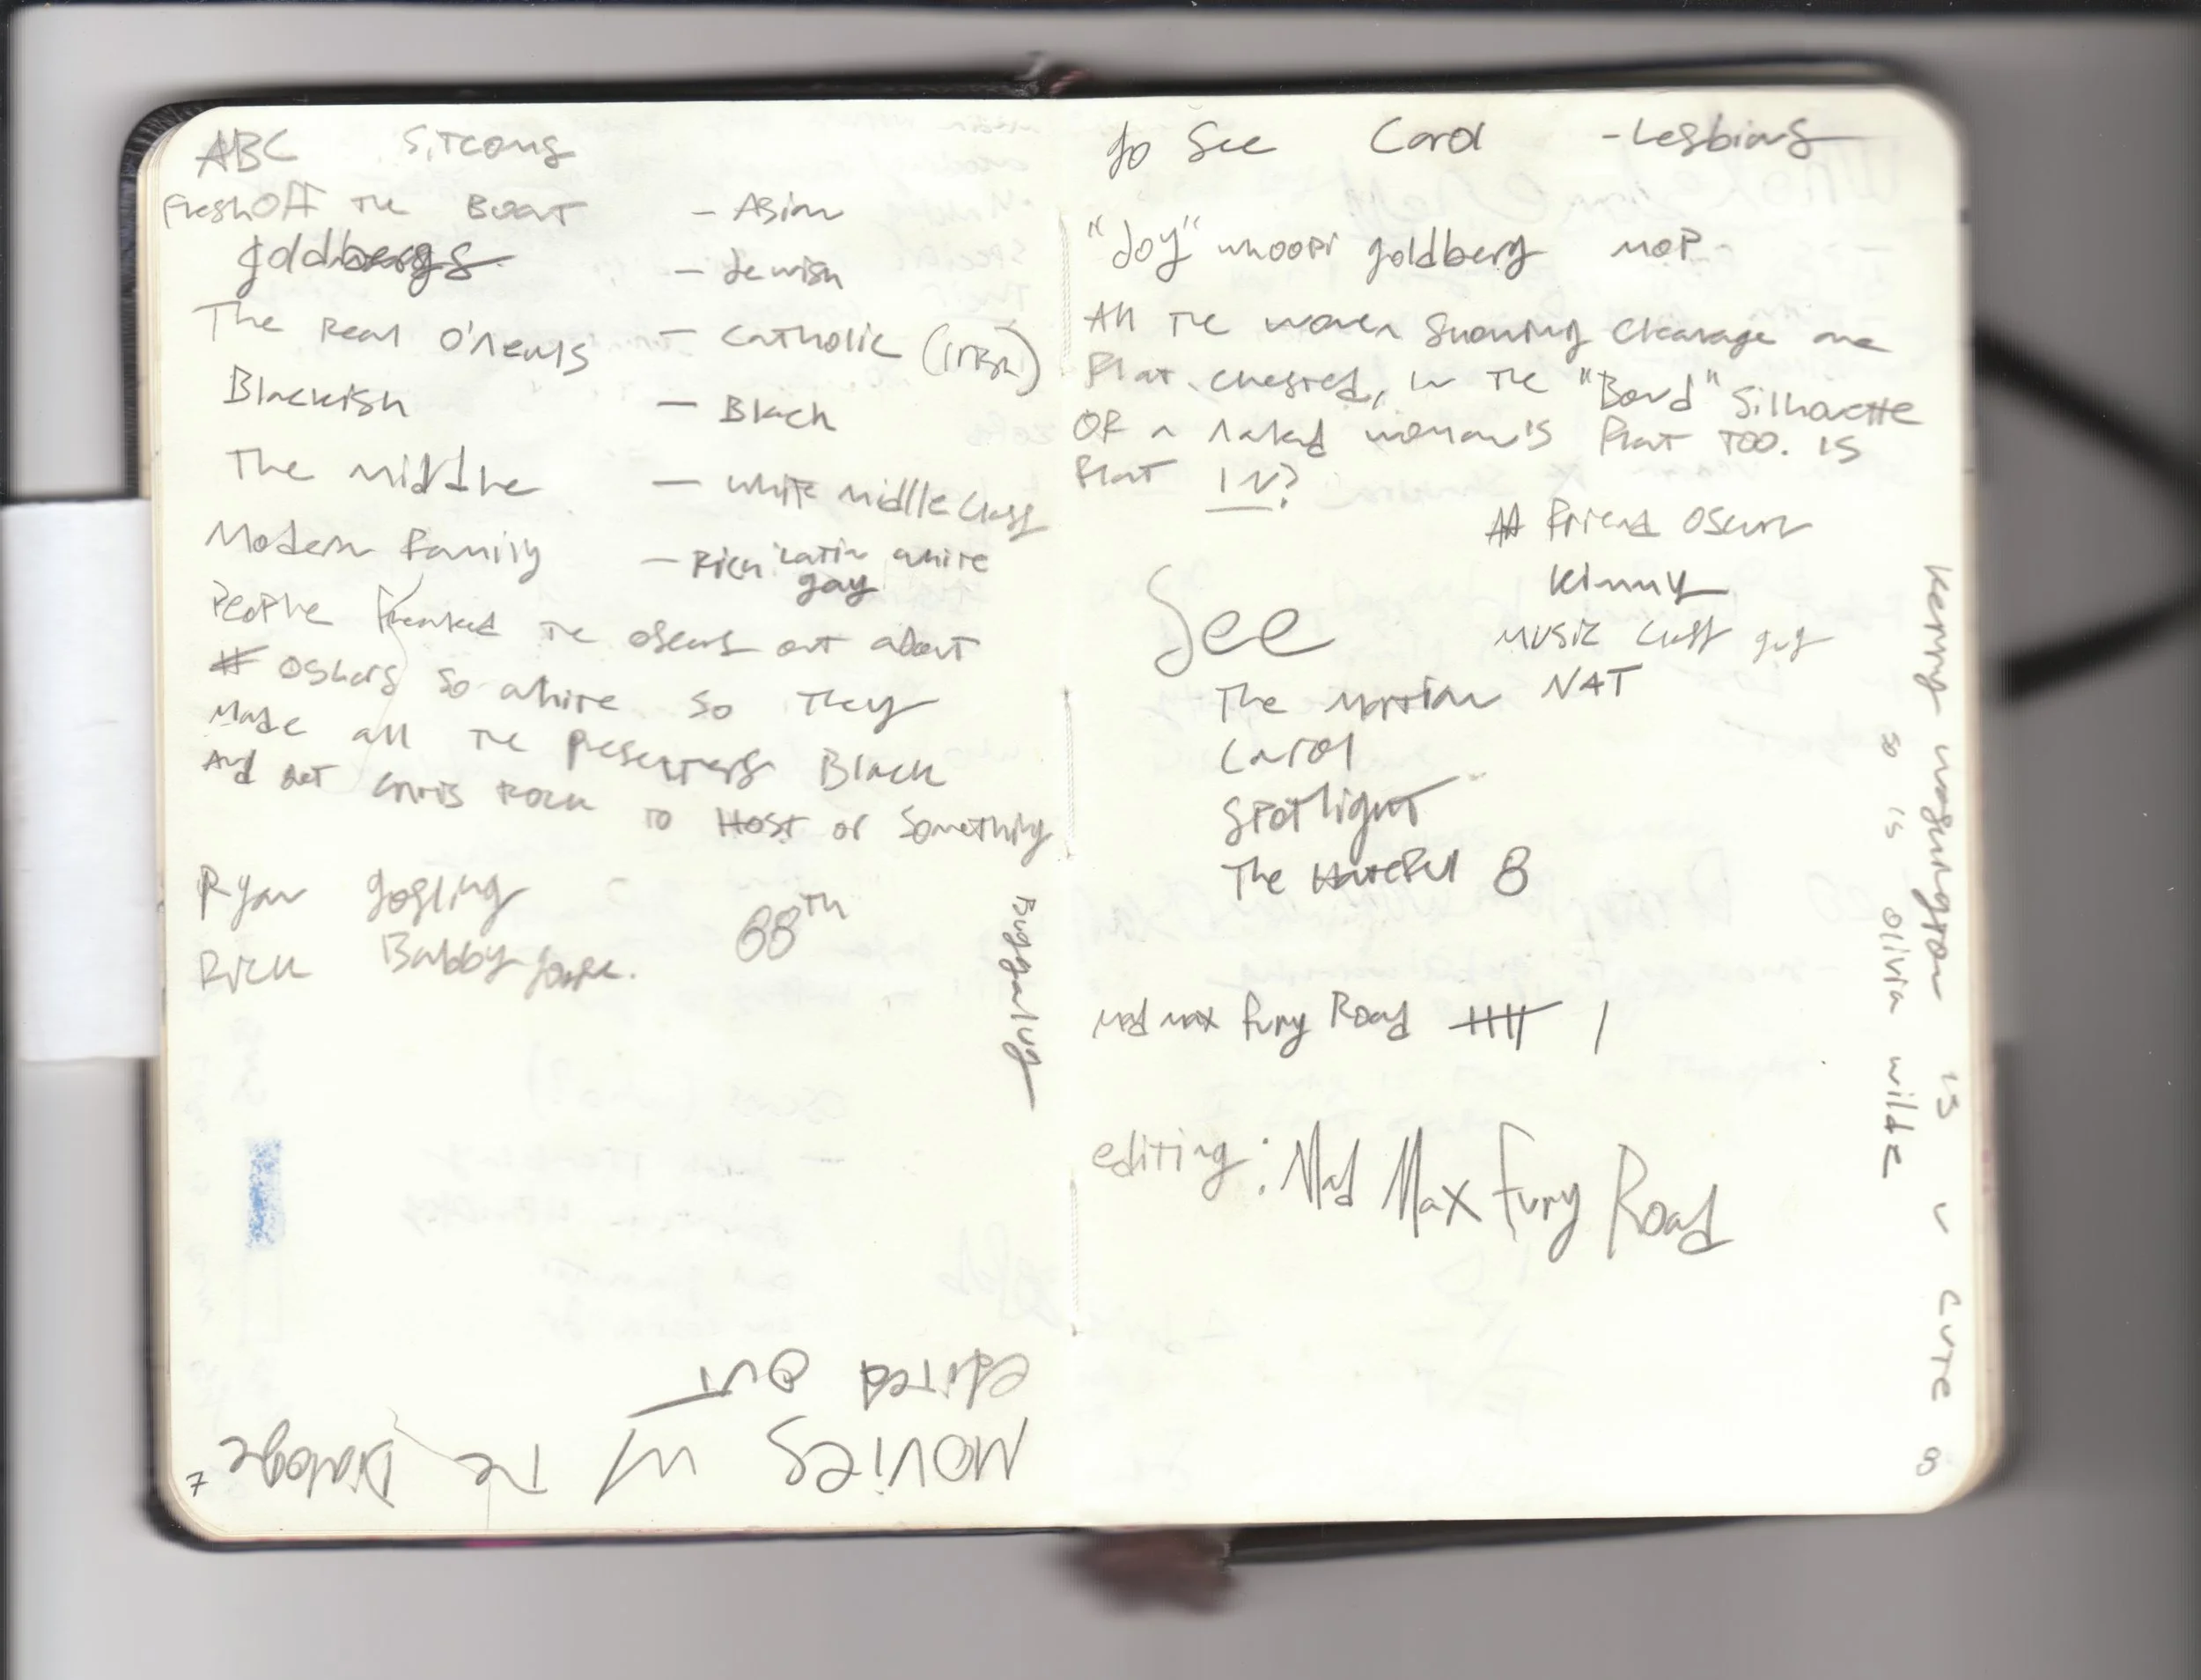 ABC Sitcoms
Fresh Off The Boat - Asian
goldbergs - Jewish
The Real O'neals - Catholic (IRSH)
Blackish - Black
The Middle - white middle class
Modern Family - Rich Latin white
gay
People freaked the oscars out about
# oskars so white so They
Made all the presenters Black
And get Chris Rock to Host or Something
Ryan gosling
88th
Rick Bubby
Buggalug
Movies w/ The Dialoge
edited out
7
go See Carol - Lesbians
"Joy" whoopi goldberg mop
All the women showing cleavage are
flat chested, in the "Bond" Silhouette
OF a naked woman's flat too. is
flat IN?
friend oscar
kimmy
music guy
See
The Martian NAT
Carol
Spotlight
The Hateful 8
Mad Max Fury Road 卌 |
editing: Mad Max Fury Road
Kerry washington is v cute
so is olivia wilde
8